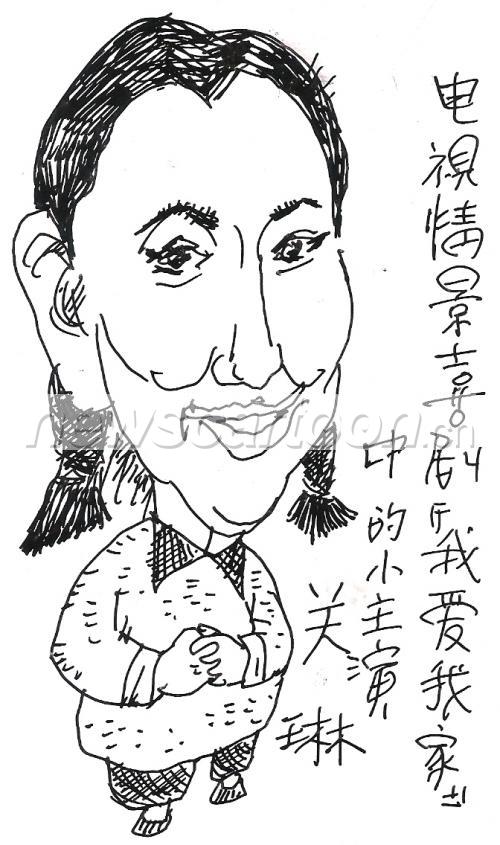 电視情景喜剧『我爱我家』
中的小主演
关琳
newscartoon.cn